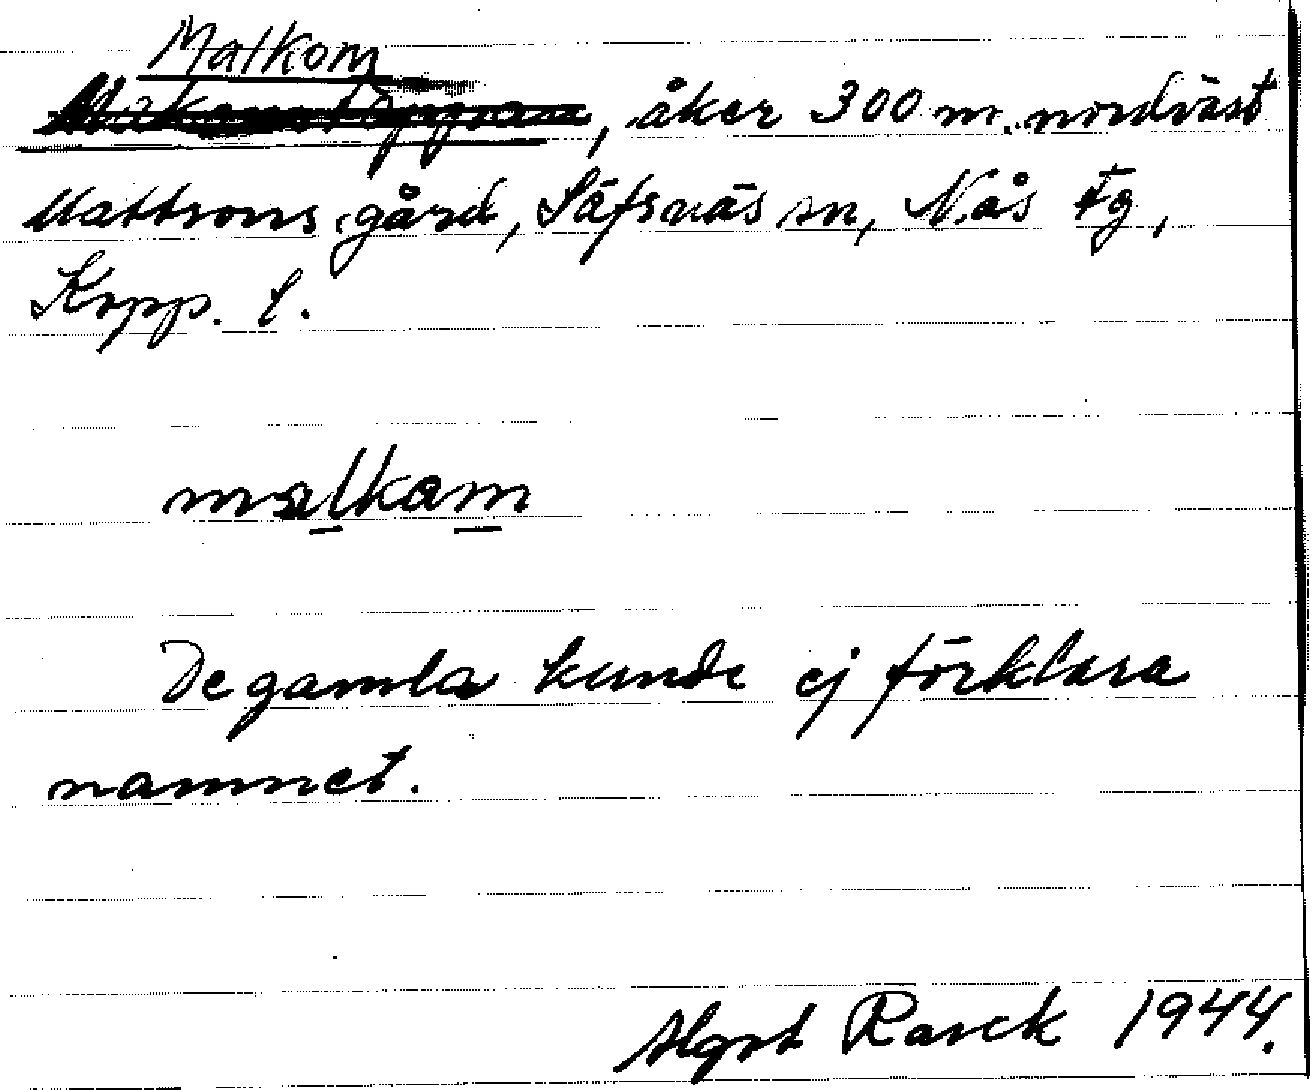 Malkom
, åker 300 m. nordväst
Mattsons gård, Säfsnäs sn, Nås Fg,
Kopp. l.
malkam
De gamla kunde ej förklara
namnet.
Algot Rasck 1944.